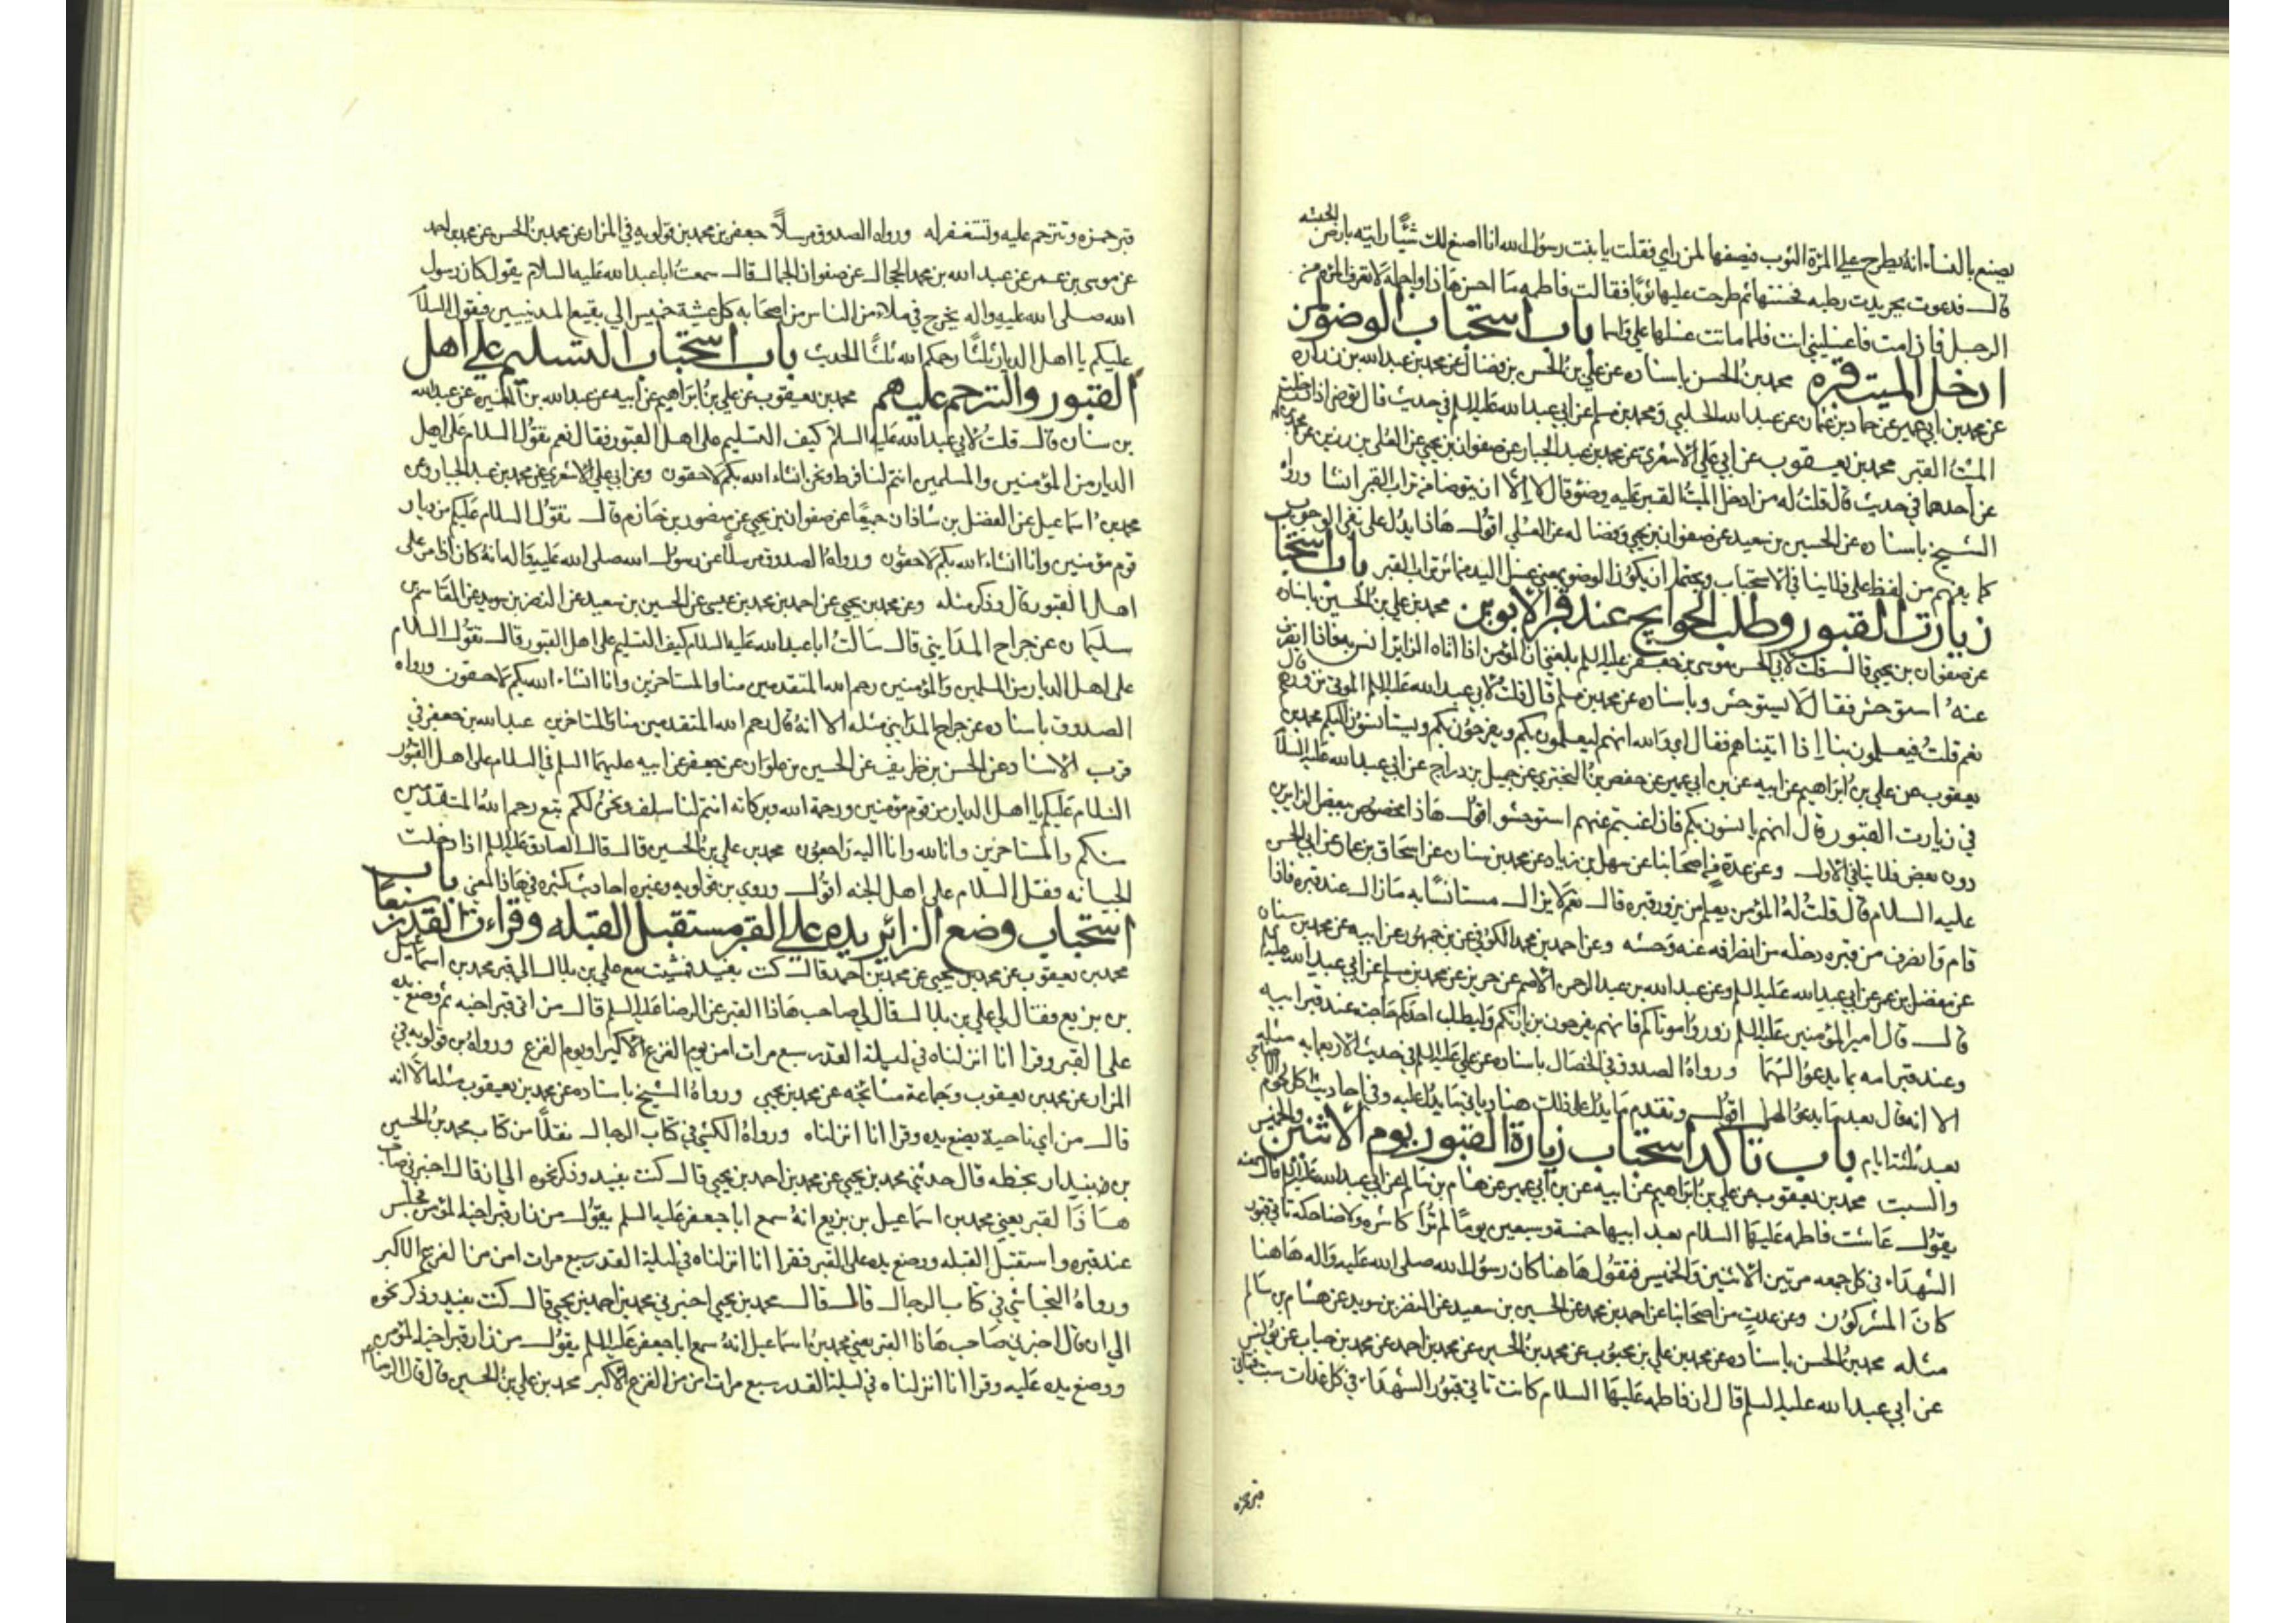 يصنع بالنساء انه يطرح على المراة الثوب فيصفها لمن راى فقلت يا بنت رسول الله انا اصنع لك شيئا رايته بارض الحبشه
قال فدعوت بجريدت رطبه فحنتها ثم طرحت عليها ثوبا فقالت فاطمه ما احسن هاذا واجمله لا تعرف المراه من
الرجل فاذا مت فاغسليني انت فلما ماتت غسلها علي واسما باب استحباب الوضو لمن
ادخل الميت قبره محمد بن الحسن باسناده عن علي بن الحسن بن فضال عن محمد بن عبد الله بن زراره
عن محمد بن ابي عمير عن حماد بن عثمان عن عبيد الله الحلبي ومحمد بن مسلم عن ابي عبد الله عليه السلم في حديث قال توضا اذا ادخلت
الميت القبر محمد بن يعقوب عن ابي علي الاشعري عن محمد بن عبد الجبار عن صفوان بن يحيى عن العلى بن رزين عن محمد بن مسلم
عن احدهما في حديث قال قلت له من ادخل الميت القبر عليه وضو قال لا الا ان يتوضا من تراب القبر انشا ورواه
الشيخ باسناده عن الحسين بن سعيد عن صفوان بن يحيى وفضاله عن العلى اقول هاذا يدل على نفي الوجوب
كما يفهم من لفظ على فلا ينافي الاستحباب ويحتمل ان يكون الوضو بمعنى غسل اليد من اثر تراب القبر باب استحباب
زيارت القبور وطلب الحوايج عند قبر الابوين محمد بن علي بن الحسين باسناده
عن صفوان بن يحيى قال قلت لابي الحسن موسى بن جعفر عليه السلم بلغني ان المؤمن اذا اتاه الزاير انس به فاذا انصرف
عنه استوحش فقال لا يستوحش وباسناده عن محمد بن مسلم قال قلت لابي عبد الله عليه السلم الموتى نزورهم قال
نعم قلت فيعلمون بنا اذا اتيناهم فقال اي والله انهم ليعلمون بكم ويفرحون بكم ويستانسون اليكم محمد بن
يعقوب عن علي بن ابراهيم عن ابيه عن بن ابي عمير عن حفص بن البختري عن جميل بن دراج عن ابي عبد الله عليه السلام
في زيارت القبور قال انهم يانسون بكم فاذا غبتم عنهم استوحشو اقول هاذا مخصوص ببعض الزايرين
دون بعض فلا ينافي الاول وعن عدة من اصحابنا عن سهل بن زياد عن محمد بن سنان عن اسحاق بن عمار عن ابي الحسن
عليه السلام قال قلت له المؤمن يعلم من يزور قبره قال نعم لا يزال مستانسا به ما زال عند قبره فاذا
قام وانصرف من قبره دخله من انصرافه عنه وحشه وعن احمد بن محمد الكوفي عن بن جمهور عن ابيه عن محمد بن سنان
عن مفضل بن عمر عن ابي عبد الله عليه السلم وعن عبد الله بن عبد الرحمن الاصم عن حريز عن محمد بن مسلم عن ابي عبد الله عليه السلم
قال قال امير المؤمنين عليه السلم زوروا موتاكم فانهم يفرحون بزيارتكم وليطلب احدكم حاجته عند قبر ابيه
وعند قبر امه بما يدعو لهما ورواه الصدوق في الخصال باسناده عن علي عليه السلم في حديث الاربعمايه مثله
الا انه قال بعد ما يدعو لهما اقول وتقدم ما يدل على ذلك هنا وياتي ما يدل عليه وفي احاديث اكل لحوم الاضاحي
بعد ثلثة ايام باب تاكد استحباب زيارة القبور يوم الاثنين والخميس
والسبت محمد بن يعقوب عن علي بن ابراهيم عن ابيه عن بن ابي عمير عن هشام بن سالم عن ابي عبد الله عليه السلم قال سمعته
يقول عاشت فاطمه عليها السلام بعد ابيها خمسة وسبعين يوما لم تر كاشره ولا ضاحكه تاتي قبور
الشهداء في كل جمعه مرتين الاثنين والخميس فتقول هاهنا كان رسول الله صلى الله عليه واله هاهنا
كان المشركون وعن عدت من اصحابنا عن احمد بن محمد عن الحسين بن سعيد عن النضر بن سويد عن هشام بن سالم
مثله محمد بن الحسن باسناده عن محمد بن علي بن محبوب عن محمد بن الحسين عن محمد بن احمد عن محمد بن حباب عن يونس
عن ابي عبد الله عليه السلم قال ان فاطمه عليها السلام كانت تاتي قبور الشهداء في كل غدات سبت فتاتي
قبر حمزه
قبر حمزه وتترحم عليه وتستغفر له ورواه الصدوق مرسلا جعفر بن محمد بن قولويه في المزار عن محمد بن الحسن عن محمد بن احمد
عن موسى بن عمر عن عبد الله بن محمد الحجال عن صفوان الجمال قال سمعت ابا عبد الله عليه السلام يقول كان رسول
الله صلى الله عليه واله يخرج في ملاء من الناس من اصحابه كل عشية خميس الي بقيع المدنيين فيقول السلام
عليكم يا اهل الديار ثلثا رحمكم الله ثلثا الحديث باب استحباب التسليم علي اهل
القبور والترحم عليهم محمد بن يعقوب عن علي بن ابراهيم عن ابيه عن عبد الله بن المغيره عن عبد الله
بن سنان قال قلت لابي عبد الله عليه السلام كيف التسليم على اهل القبور فقال نعم تقول السلام على اهل
الديار من المؤمنين والمسلمين انتم لنا فرط ونحن انشاء الله بكم لاحقون وعن ابي علي الاشعري عن محمد بن عبد الجبار وعن
محمد بن اسماعيل عن الفضل بن شاذان جميعا عن صفوان بن يحيى عن منصور بن حازم قال تقول السلام عليكم من ديار
قوم مؤمنين وانا انشاء الله بكم لاحقون ورواه الصدوق مرسلا عن رسول الله صلى الله عليه واله انه كان اذا مر على
اهل القبور قال وذكر مثله وعن محمد بن يحيى عن احمد بن محمد بن عيسى عن الحسين بن سعيد عن النضر بن سويد عن القاسم بن
سليمان عن جراح المدايني قال سالت ابا عبد الله عليه السلام كيف التسليم على اهل القبور قال تقول السلام
على اهل الديار من المسلمين والمؤمنين رحم الله المتقدمين منا والمستاخرين وانا انشاء الله بكم لاحقون ورواه
الصدوق باسناده عن جراح المدايني مثله الا انه قال رحم الله المتقدمين منا والمتاخرين عبد الله بن جعفر في
قرب الاسناد عن الحسن بن ظريف عن الحسين بن علوان عن جعفر عن ابيه عليهما السلم في السلام على اهل القبور
السلام عليكم يا اهل الديار من قوم مؤمنين ورحمة الله وبركاته انتم لنا سلف ونحن لكم تبع رحم الله المتقدمين
منكم والمستاخرين وانا لله وانا اليه راجعون محمد بن علي بن الحسين قال قال الصادق عليه السلم اذا دخلت
الجبانه فقل السلام على اهل الجنه اقول وروى بن قولويه وغيره احاديث كثيره في هاذا المعنى باب
استحباب وضع الزائر يده علي القبر مستقبل القبله وقراءت القدر سبعا
محمد بن يعقوب عن محمد بن يحيى عن محمد بن احمد قال كنت بفيد فمشيت مع علي بن بلال الى قبر محمد بن اسماعيل
بن بزيع فقال لي علي بن بلال قال لي صاحب هاذا القبر عن الرضا عليه السلم قال من اتى قبر اخيه ثم وضع يده
على القبر وقرا انا انزلناه في ليلة القدر سبع مرات امن يوم الفزع الاكبر او يوم الفزع ورواه بن قولويه في
المزار عن محمد بن يعقوب وجماعة مشائخه عن محمد بن يحيى ورواه الشيخ باسناده عن محمد بن يعقوب مثله الا انه
قال من اي ناحية يضع يده وقرا انا انزلناه ورواه الكشي في كتاب الرجال نقلا من كتاب محمد بن الحسين
بن بنيدار بخطه قال حدثني محمد بن يحيى عن محمد بن احمد بن يحيى قال كنت بفيد وذكر نحوه الي ان قال اخبرني صاحب
هاذا القبر يعني محمد بن اسماعيل بن بزيع انه سمع ابا جعفر عليه السلم يقول من زار قبر اخيه المؤمن فجلس
عند قبره واستقبل القبله ووضع يده على القبر فقرا انا انزلناه في ليلة القدر سبع مرات امن من الفزع الاكبر
ورواه النجاشي في كتاب الرجال قال قال محمد بن يحيى اخبرني محمد بن احمد بن يحيى قال كنت بفيد وذكر نحوه
الي ان قال اخبرني صاحب هاذا القبر يعني محمد بن اسماعيل انه سمع ابا جعفر عليه السلم يقول من زار قبر اخيه المؤمن
ووضع يده عليه وقرا انا انزلناه في ليلة القدر سبع مرات امن من الفزع الاكبر محمد بن علي بن الحسين قال قال الرضا